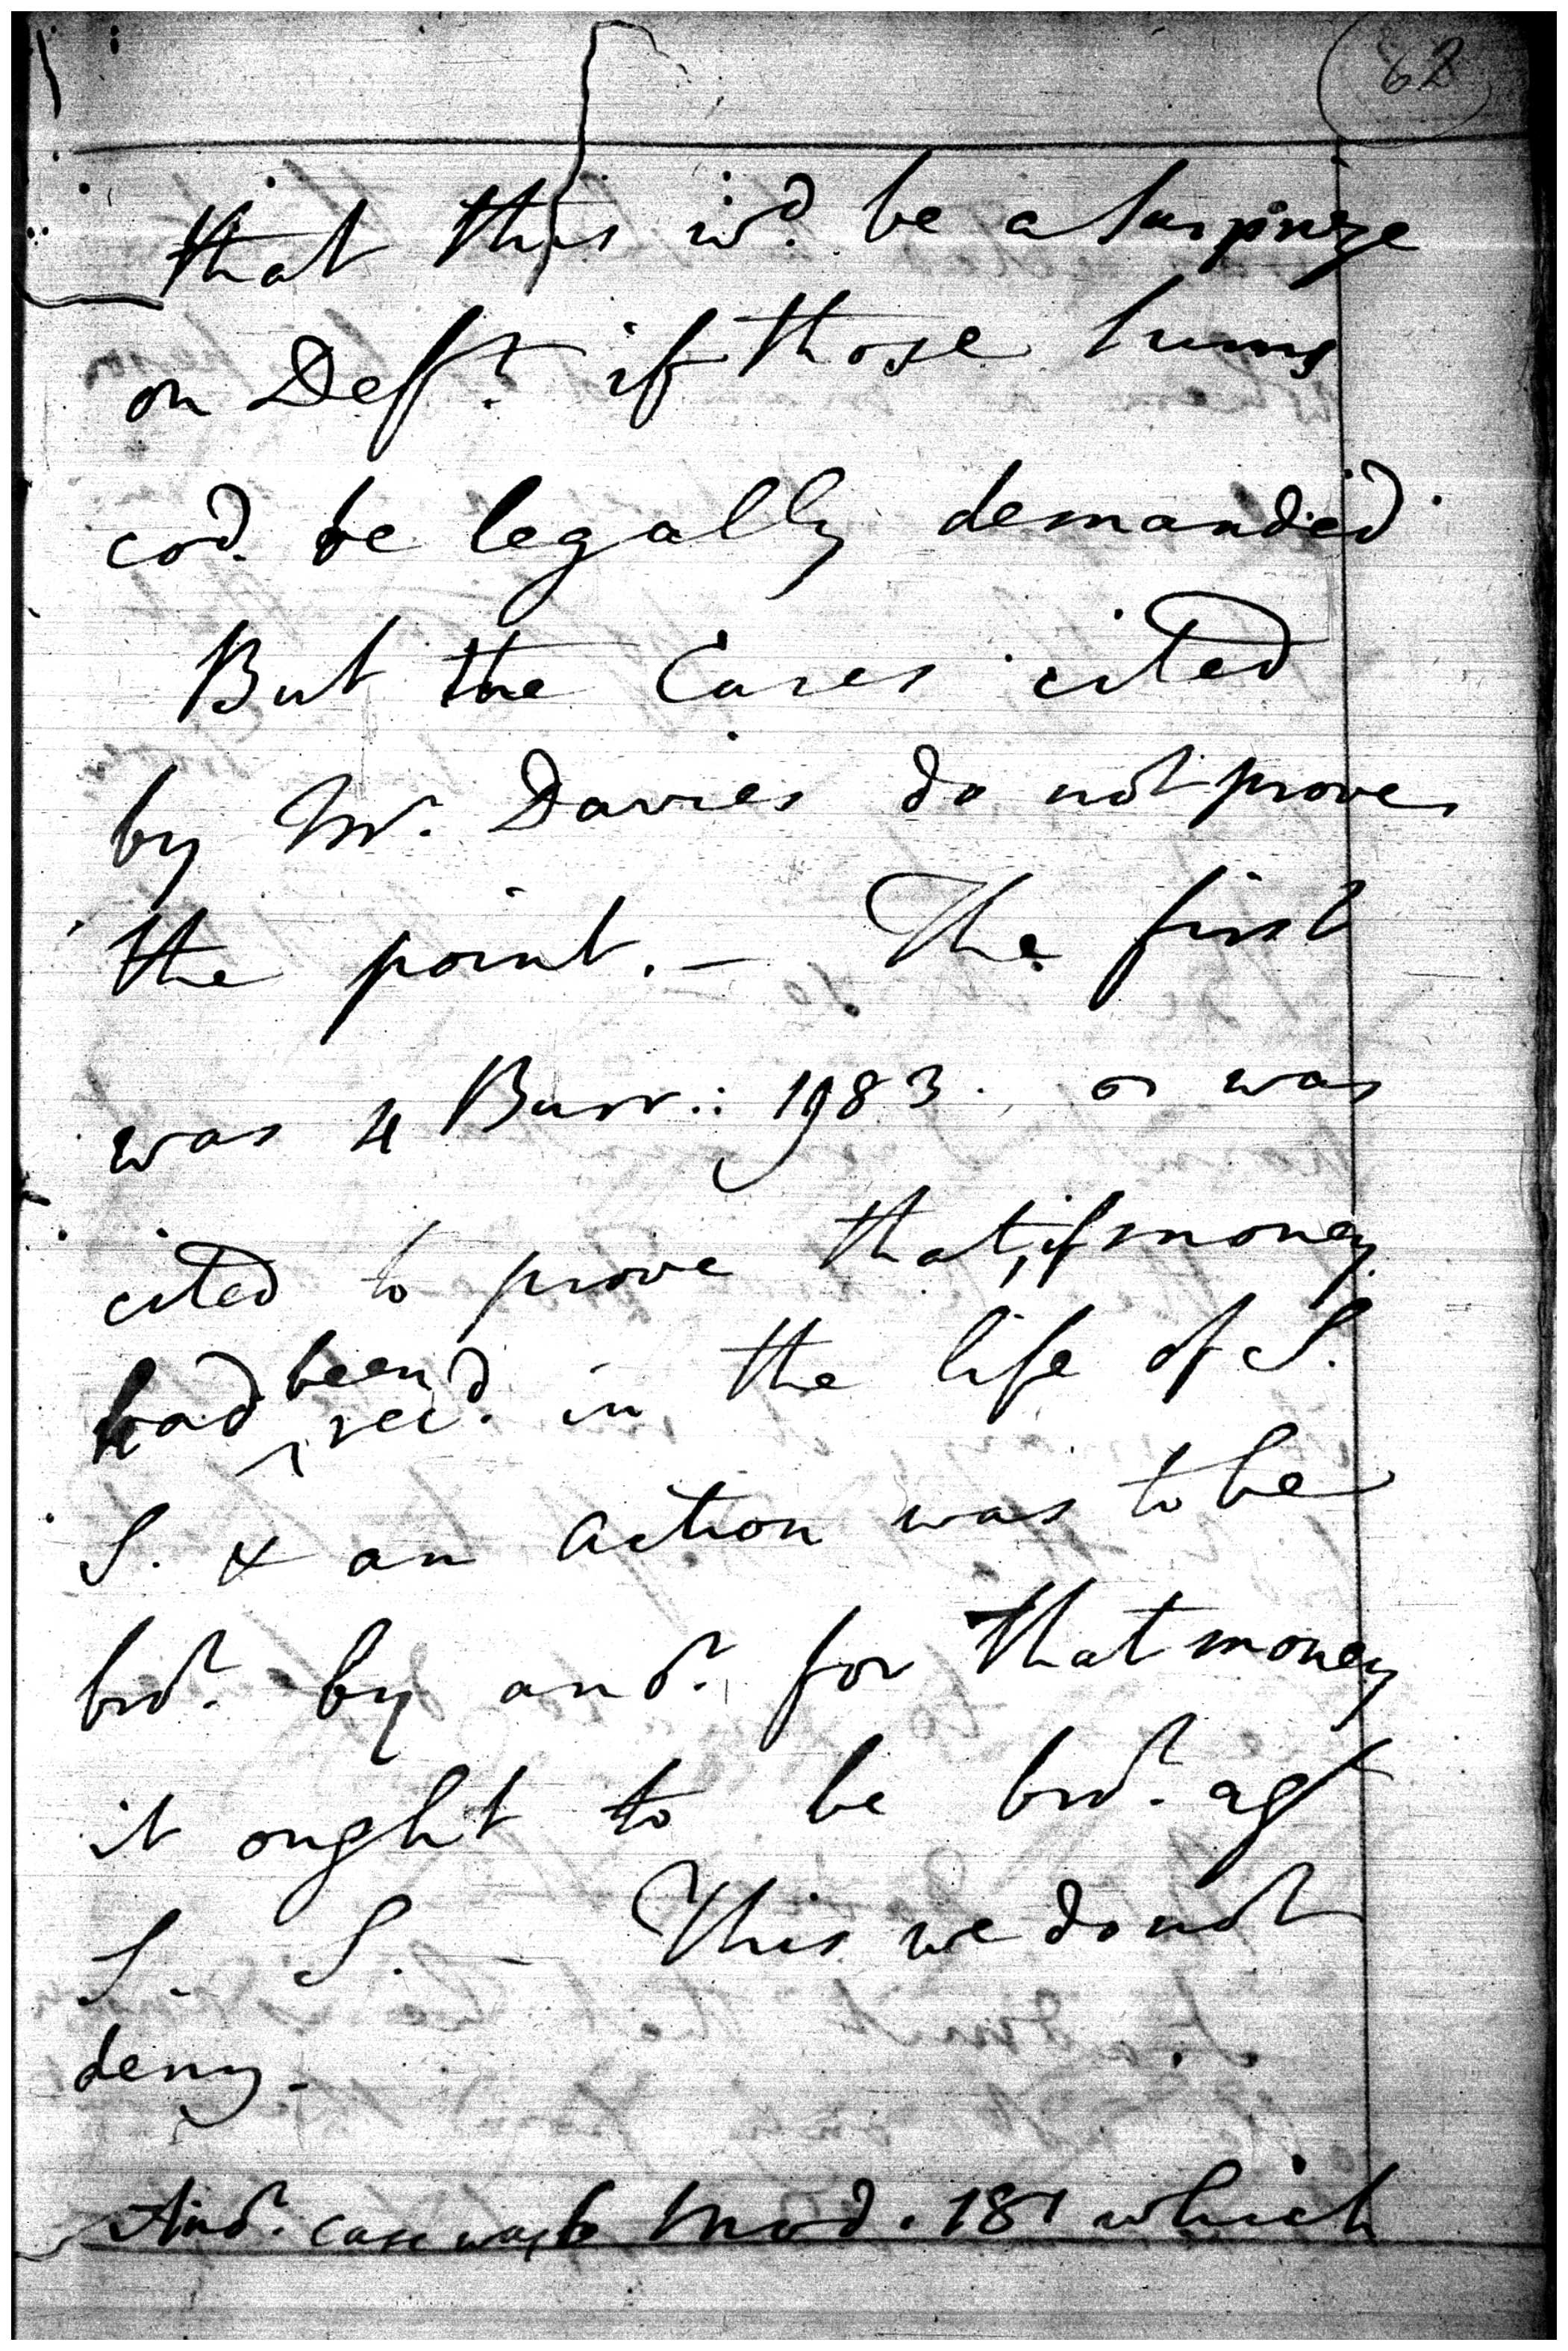 62
that this wd. be a Surprize
on Deft. if those Sums
cod. be legally demanded.
But the Cases cited
by Mr. Davies do not prove
the point. - The first
was 4 Burr: 1983. or was
cited to prove that, if money
had been recd. in the life of S.
S. & an action was to be
brot. by anor. for that money
it ought to be brot. agt
S. S. - This we do not
deny.
Anor. case was 6 Mod. 181 which